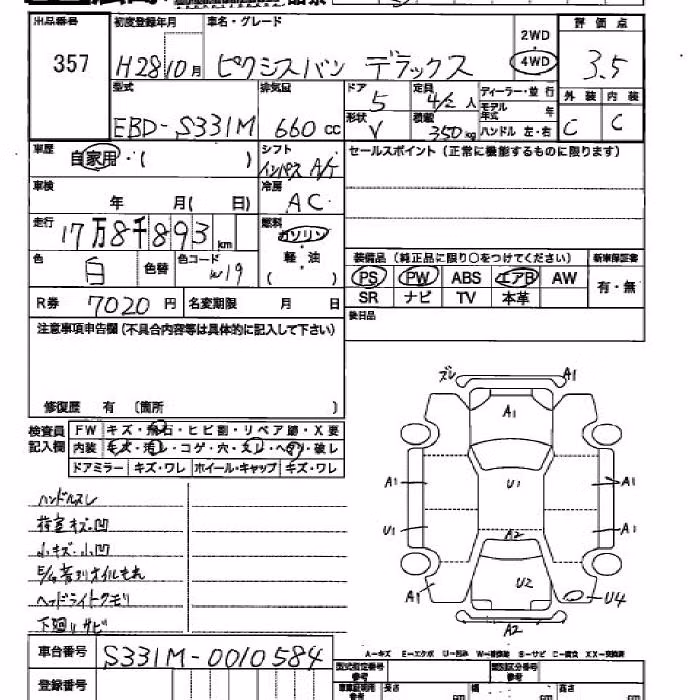 出品番号 初度登録年月 車名・グレード 2WD 評価点
357 H28 10月 ピクシスバン デラックス 4WD 3.5
型式 排気量 ドア 5 定員 4/2 人 ディーラー・並行 外装 内装
モデル年式 年
EBD-S331M 660 cc 形状 V 積載 350kg ハンドル 左・右 C C
車歴 自家用・( ) シフト インパネ A/T セールスポイント (正常に機能するものに限ります)
車検 年 月( 日) 冷房 AC
走行 17万8千893 km 燃料 ガソリン
軽・油
( )
色 白 色替 色コード W19
装備品 (純正品に限り○をつけてください) 新車保証書
PS PW ABS エアB AW 有・無
SR ナビ TV 本革
R券 7020 円 名変期限 月 日 後日品
注意事項申告欄 (不具合内容等は具体的に記入して下さい)
修復歴 有 〔箇所 〕
検査員記入欄
FW キズ・飛石・ヒビ割・リペア跡・X要
内装 キズ・汚レ・コゲ・穴・スレ・ヘタリ・破レ
ドアミラー キズ・ワレ ホイール・キャップ キズ・ワレ
ハンドルスレ
荷室キズ凹
小キズ・小凹
E/g オイルもれ
ヘッドライトクモリ
下廻りサビ
ズレ A1
A1
A1 U1 A1
U1 A2 A1
A1 U2 U4
A2
A-キズ E-エクボ U-凹み S-サビ C-腐食 XX-交換済
車台番号 S331M-0010584
登録番号
型式指定番号 参考 類別区分番号 参考
長さ cm 幅 cm 高さ cm